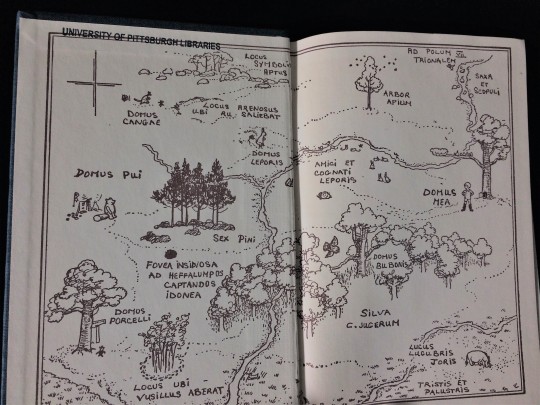 UNIVERSITY OF PITTSBURGH LIBRARIES
LOCUS
SYMBOLI
APTUS
DOMUS
CANGAE
LOCUS ARENOSUS
UBI RU SALIEBAT
DOMUS
LEPORIS
DOMUS PUI
SEX PINI
FOVEA INSIDIOSA
AD HEFFALUMPOS
CAPTANDOS
IDONEA
DOMUS
PORCELLI
LOCUS UBI
VUSILLUS ABERAT
AD POLUM
TRIONALEM
SAXA
ET
SCOPULI
ARBOR
APIUM
AMICI ET
COGNATI
LEPORIS
DOMUS
MEA
DOMUS
BUBONIS
SILVA
C. JUGERUM
LUCUS
LUGUBRIS
JORIS
TRISTIS ET
PALUSTRIS